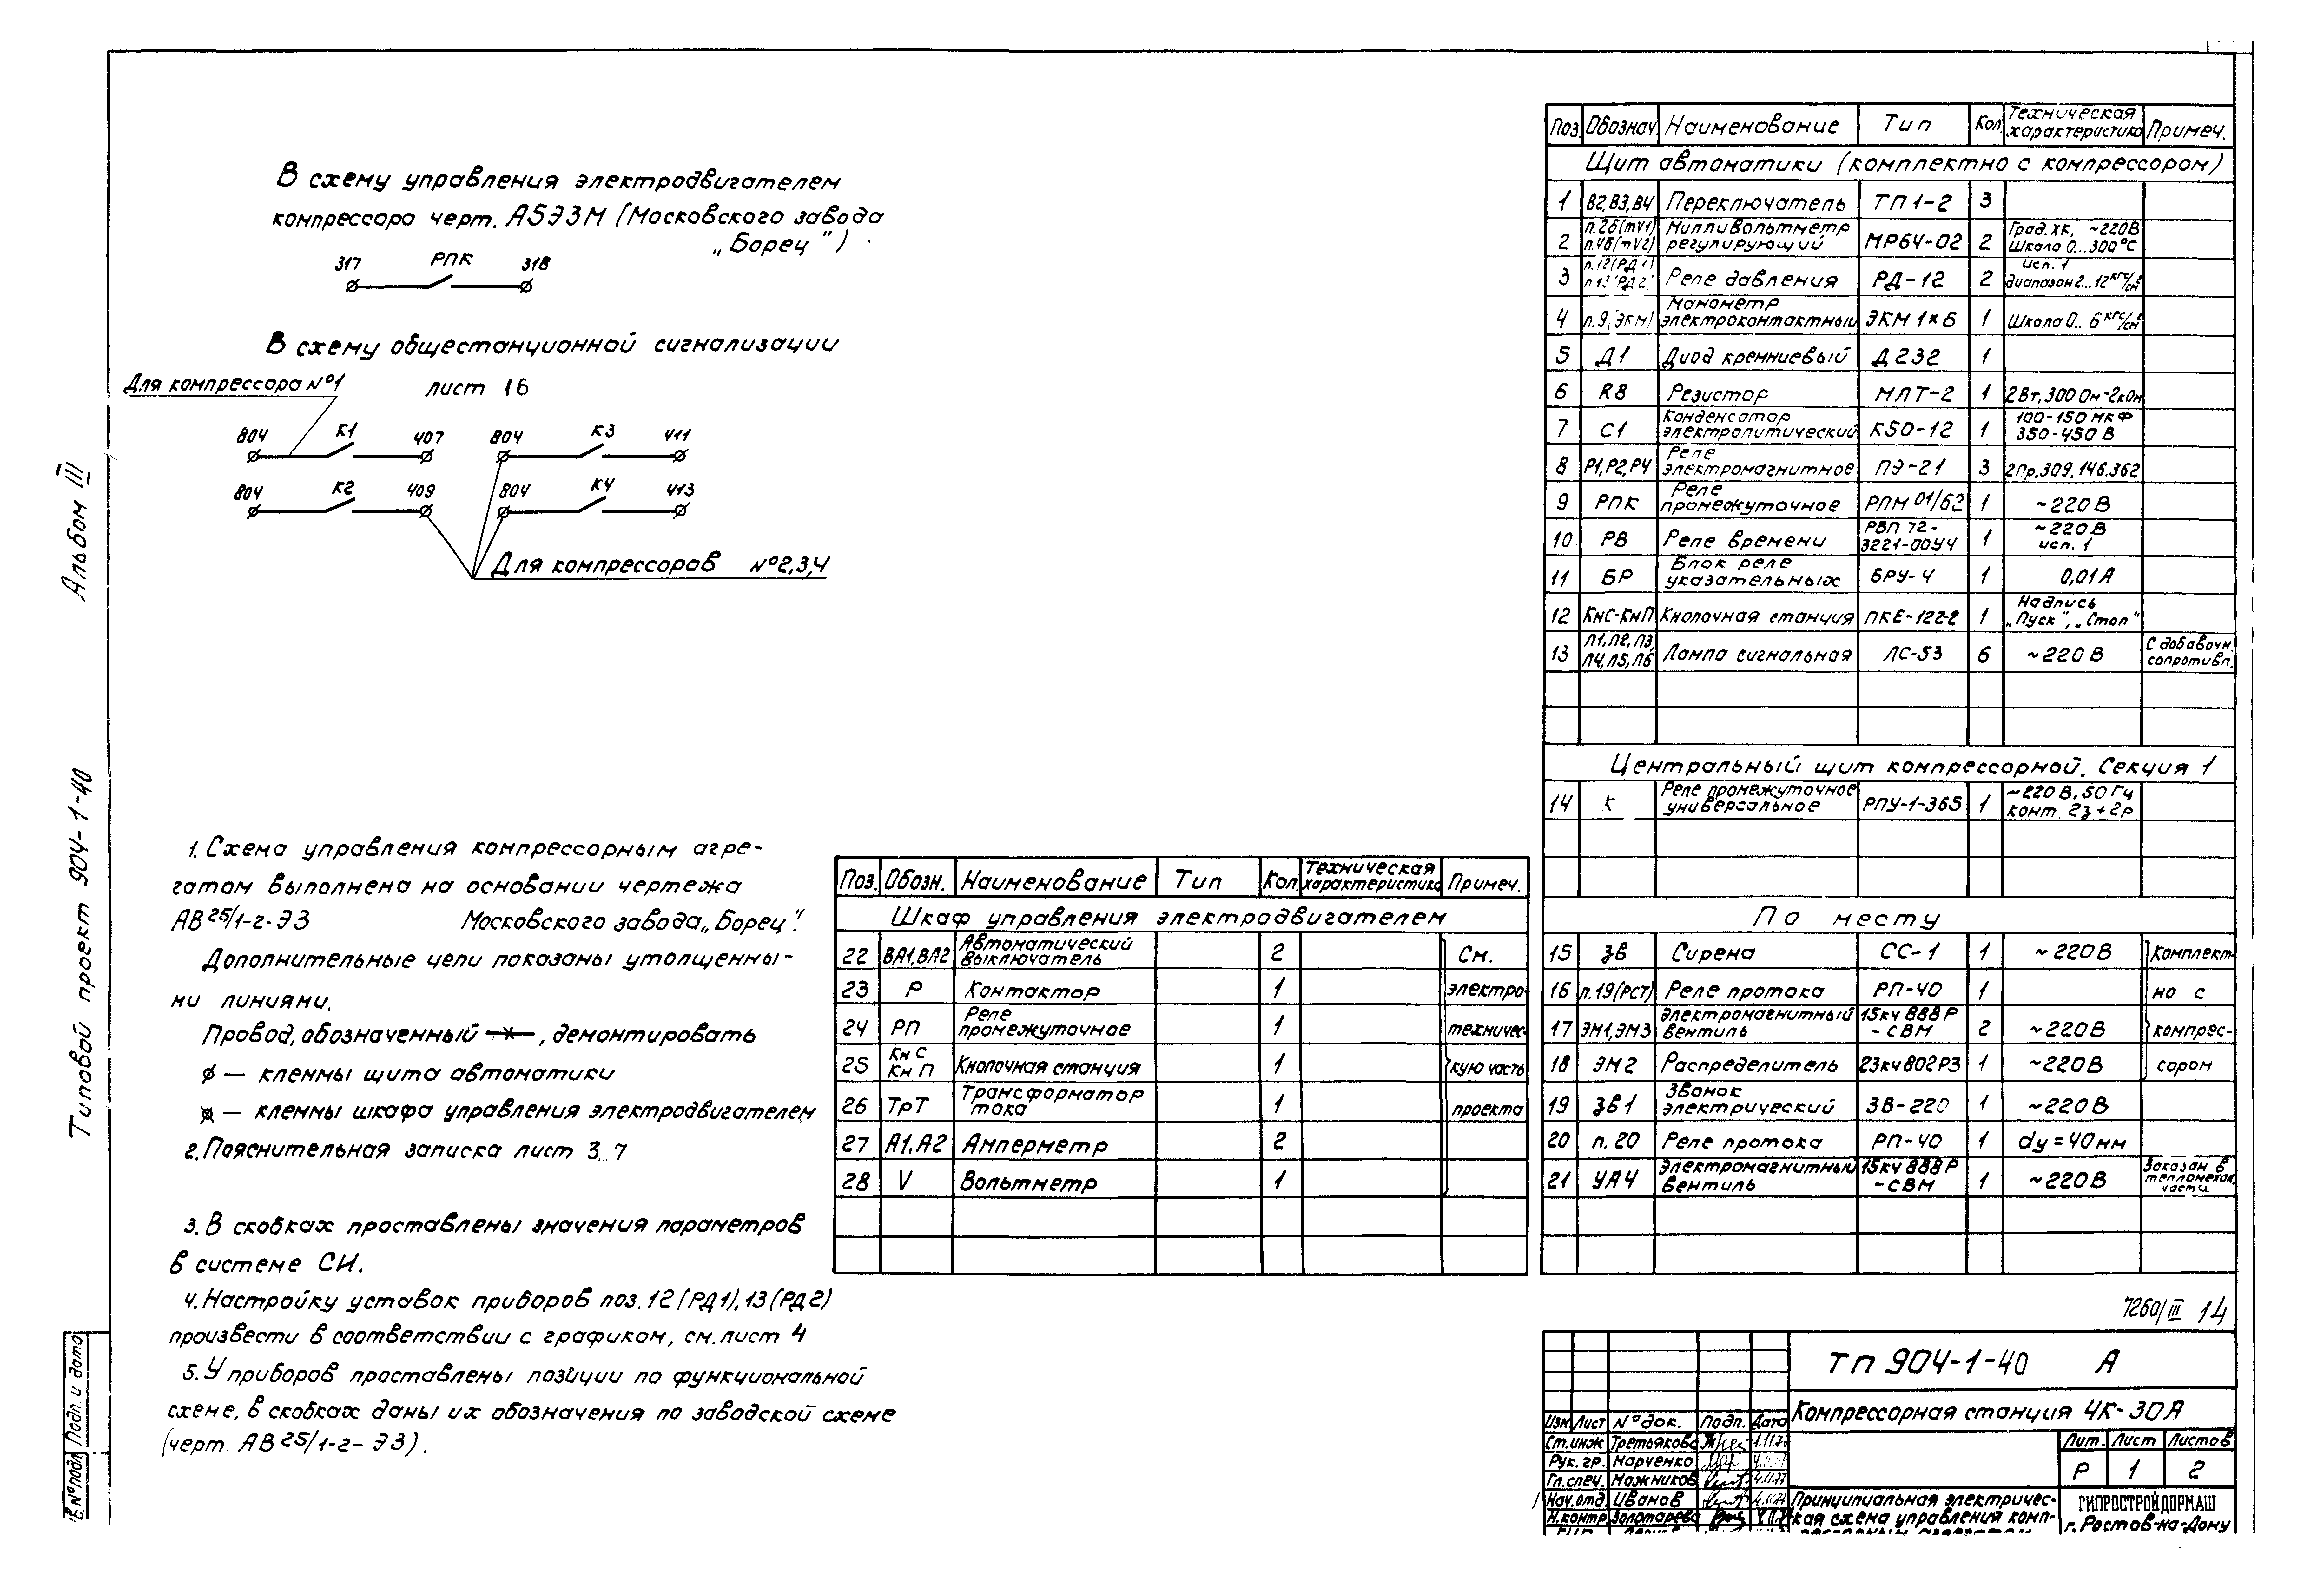 Альбом III
Типовой проект 904-1-40
Подп. и дата
В схему управления электродвигателем
компрессора черт. А5ЭЗМ (Московского завода
„Борец")
317 РПК 318
В схему общестанционной сигнализации
Для компрессора №1
лист 16
804 К1 407 804 К3 411
804 К2 409 804 К4 413
Для компрессоров №2,3,4
1. Схема управления компрессорным агре-
гатом выполнена на основании чертежа
АВ25/1-г-ЭЗ Московского завода „Борец".
Дополнительные цепи показаны утолщенны-
ми линиями.
Провод, обозначенный —×—, демонтировать
ø — клеммы щита автоматики
— клеммы шкафа управления электродвигателем
2. Пояснительная записка лист 3...7
3. В скобках проставлены значения параметров
в системе СИ.
4. Настройку уставок приборов поз. 12 (РД1), 13 (РД2)
произвести в соответствии с графиком, см. лист 4
5. У приборов проставлены позиции по функциональной
схеме, в скобках даны их обозначения по заводской схеме
(черт. АВ25/1-г-ЭЗ).
Поз. Обозн. Наименование Тип Кол. Техническая характеристика Примеч.
Шкаф управления электродвигателем
22 ВА1,ВА2 Автоматический выключатель 2 См.
23 Р Контактор 1 электро-
24 РП Реле промежуточное 1 техничес-
25 КнС КнП Кнопочная станция 1 кую часть
26 ТрТ Трансформатор тока 1 проекта
27 А1,А2 Амперметр 2
28 V Вольтметр 1
Поз. Обознач. Наименование Тип Кол. Техническая характеристика Примеч.
Щит автоматики (комплектно с компрессором)
1 В2,В3,В4 Переключатель ТП1-2 3
2 п.2б(mV1) п.4б(mV2) Милливольтметр регулирующий МР64-02 2 Град.ХК, ~220В Шкала 0...300°С
3 п.12(РД1) п.13(РД2) Реле давления РД-12 2 Исп. 1 диапазон 2...12 кгс/см²
4 п.9(ЭКМ) Манометр электроконтактный ЭКМ 1×6 1 Шкала 0..6 кгс/см²
5 Д1 Диод кремниевый Д232 1
6 R8 Резистор МЛТ-2 1 2Вт,300 Ом-2кОм
7 С1 Конденсатор электролитический К50-12 1 100-150 мкФ 350-450 В
8 Р1,Р2,Р4 Реле электромагнитное ПЭ-21 3 2Пр.309.146.362
9 РПК Реле промежуточное РПМ 01/62 1 ~220В
10 РВ Реле времени РВП 72-3221-00У4 1 ~220В исп. 1
11 БР Блок реле указательных БРУ-4 1 0,01А
12 КнС-КнП Кнопочная станция ПКЕ-122-2 1 Надпись „Пуск", „Стоп"
13 Л1,Л2,Л3, Л4,Л5,Л6 Лампа сигнальная ЛС-53 6 ~220В С добавочн. сопротивл.
Центральный щит компрессорной. Секция 1
14 К Реле промежуточное универсальное РПУ-1-365 1 ~220 В, 50 Гц конт. 2з+2р
По месту
15 Зв Сирена СС-1 1 ~220В Комплект-
16 п.19(РСТ) Реле протока РП-40 1 но с
17 ЭМ1,ЭМ3 Электромагнитный вентиль 15кч 888Р-СВМ 2 ~220В компрес-
18 ЭМ2 Распределитель 23кч802Р3 1 ~220В сором
19 Зв1 Звонок электрический ЗВ-220 1 ~220В
20 п. 20 Реле протока РП-40 1 dу = 40мм
21 УА4 Электромагнитный вентиль 15кч 888Р-СВМ 1 ~220В Заказан в тепломехан. части
7260/III 14
ТП 904-1-40 А
Компрессорная станция 4К-30А
Изм Лист №док. Подп. Дата
Ст.инж Третьякова
Рук.гр. Марченко
Гл.спец. Можников
Нач.отд. Иванов
Н.контр. Золотарева
Лит. Лист Листов
Р 1 2
Принципиальная электричес-
кая схема управления комп-
рессорным агрегатом
ГИПРОСТРОЙДОРМАШ
г. Ростов-на-Дону